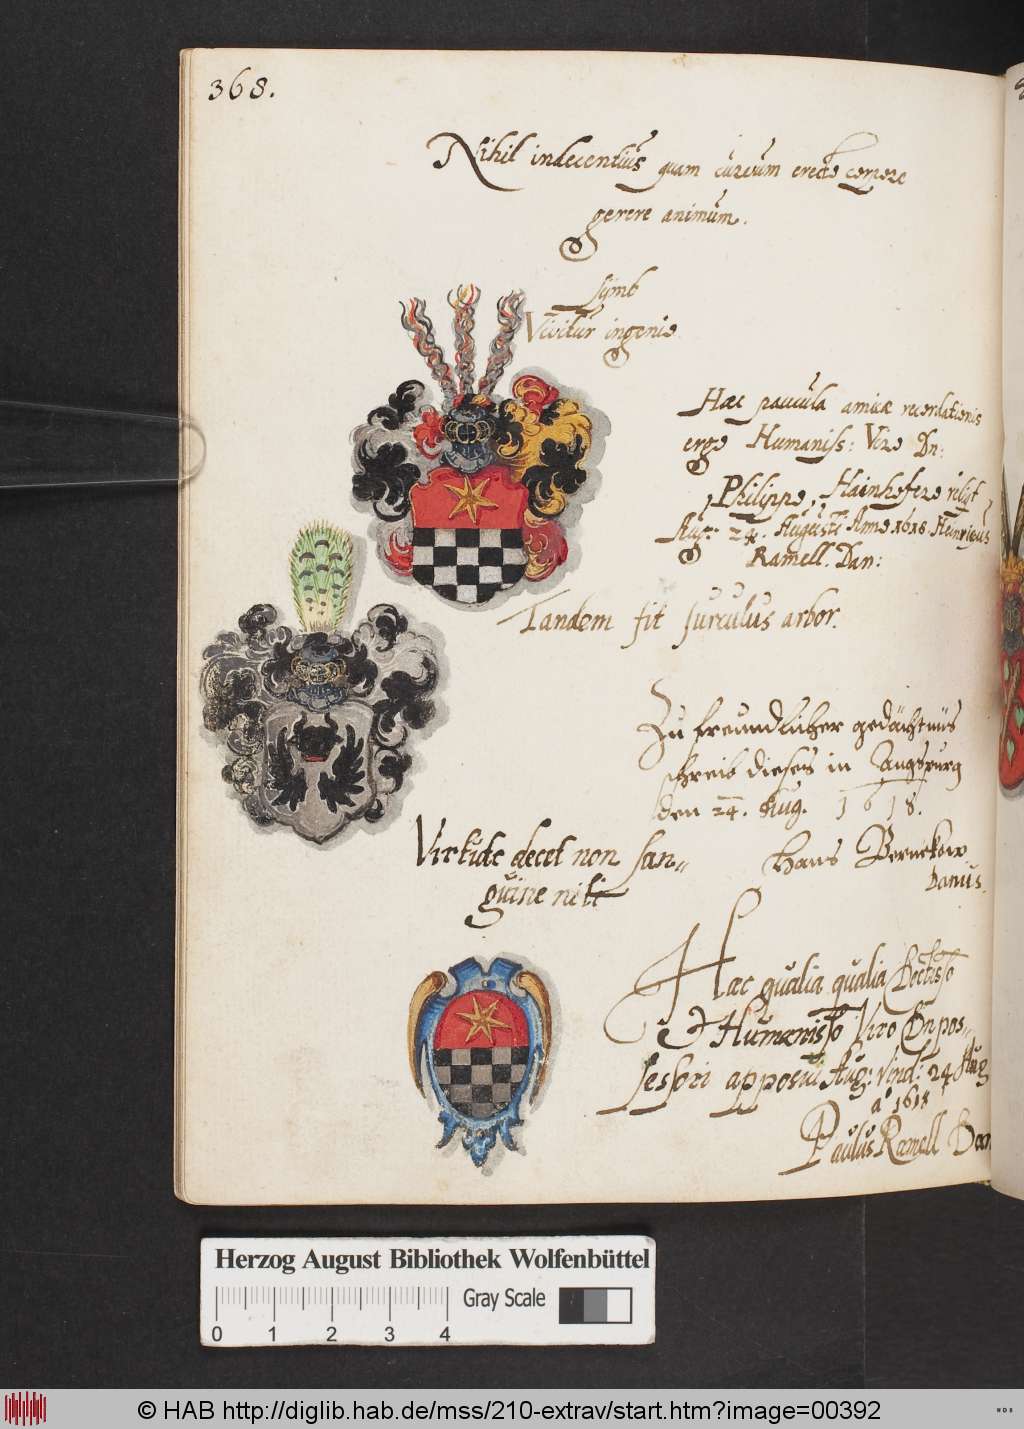 368.
Nihil indecentius quam curvum erecto corpore
gerere animum.
Symb
Vivitur ingenio
Haec paucula amicae recordationis
ergo Humaniss: Viro Dn:
Philippo Hainhofero reliqt
Aug: 24. Augusti Anno 1618 Henricus
Ramell. Dan:
Tandem fit surculus arbor.
Zu freundlicher gedächtnüs
schreib dieses in Augspurg
den 24. Aug. 1618.
Hans Bernekow
Danus.
Virtute decet non san-
guine niti
Haec qualia qualia Doctisso
& Humanisso Viro Dn pos-
sessori apposui Aug: Vind: 24 Aug
ao 1618
Paulus Ramell Dan
Herzog August Bibliothek Wolfenbüttel
Gray Scale
0 1 2 3 4
© HAB http://diglib.hab.de/mss/210-extrav/start.htm?image=00392